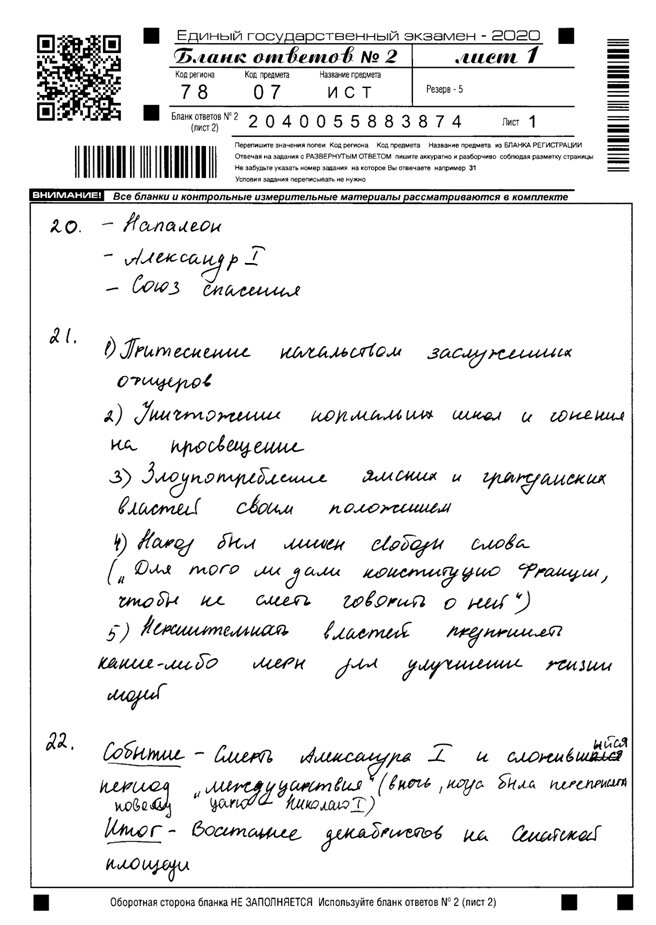 Единый государственный экзамен - 2020
Бланк ответов № 2 лист 1
Код региона Код предмета Название предмета
78 07 ИСТ Резерв - 5
Бланк ответов № 2 (лист 2) 2040055883874 Лист 1
Перепишите значения полей Код региона Код предмета Название предмета из БЛАНКА РЕГИСТРАЦИИ
Отвечая на задания с РАЗВЕРНУТЫМ ОТВЕТОМ пишите аккуратно и разборчиво соблюдая разметку страницы
Не забудьте указать номер задания на которое Вы отвечаете например 31
Условия задания переписывать не нужно
ВНИМАНИЕ! Все бланки и контрольные измерительные материалы рассматриваются в комплекте
20. - Напалеон
- Александр I
- Союз спасения
21. 1) Притеснение начальством заслуженных
офицеров
2) Уничтожение нормальных школ и гонения
на просвещение
3) Злоупотребление земских и гражданских
властей своим положением
4) Народ был лишен свободы слова
(„Для того ли дали конституцию Франции,
чтобы не сметь говорить о ней“)
5) Нерешительность властей предпринять
какие-либо меры для улучшение жизни
людей
22. Событие - Смерть Александра I и сложившийся
период „междуцарствия“ (в ночь, когда была переприсяга
новому царю Николаю I)
Итог - Восстание декабристов на Сенатской
площади
Оборотная сторона бланка НЕ ЗАПОЛНЯЕТСЯ Используйте бланк ответов № 2 (лист 2)